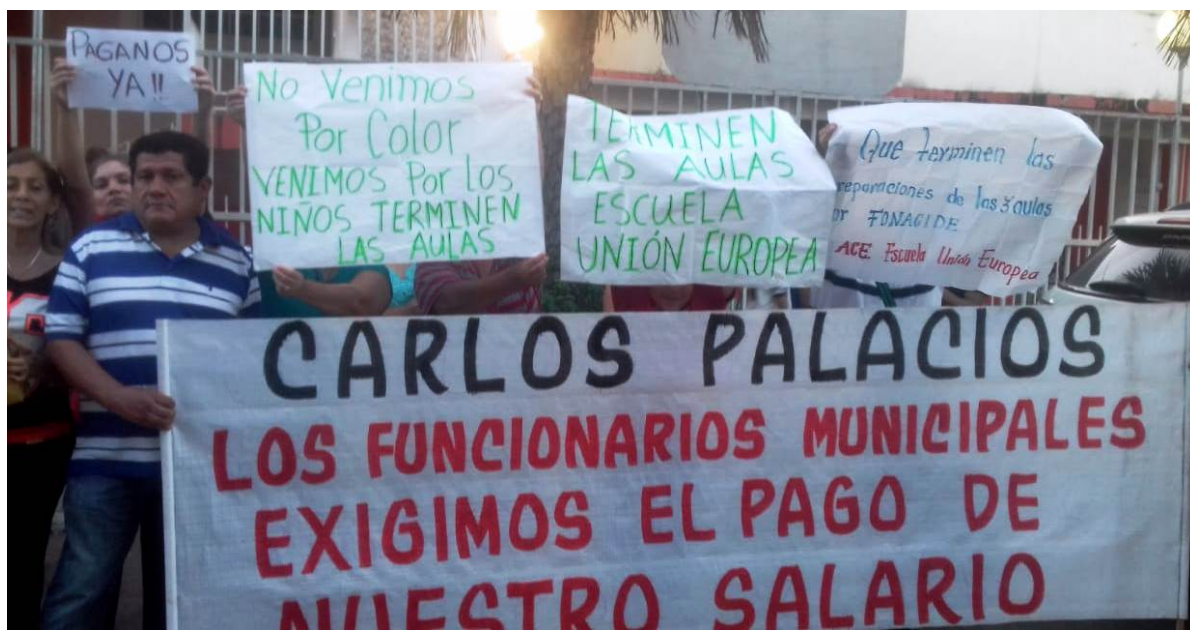 PAGANOS
YA!!
No Venimos
Por Color
VENIMOS Por Los
NIÑOS TERMINEN
LAS AULAS
TERMINEN
LAS AULAS
ESCUELA
UNIÓN EUROPEA
Que terminen las
reparaciones de las 3 aulas
or FONACIDE
ACE Escuela Unión Europea
CARLOS PALACIOS
LOS FUNCIONARIOS MUNICIPALES
EXIGIMOS EL PAGO DE
NUESTRO SALARIO